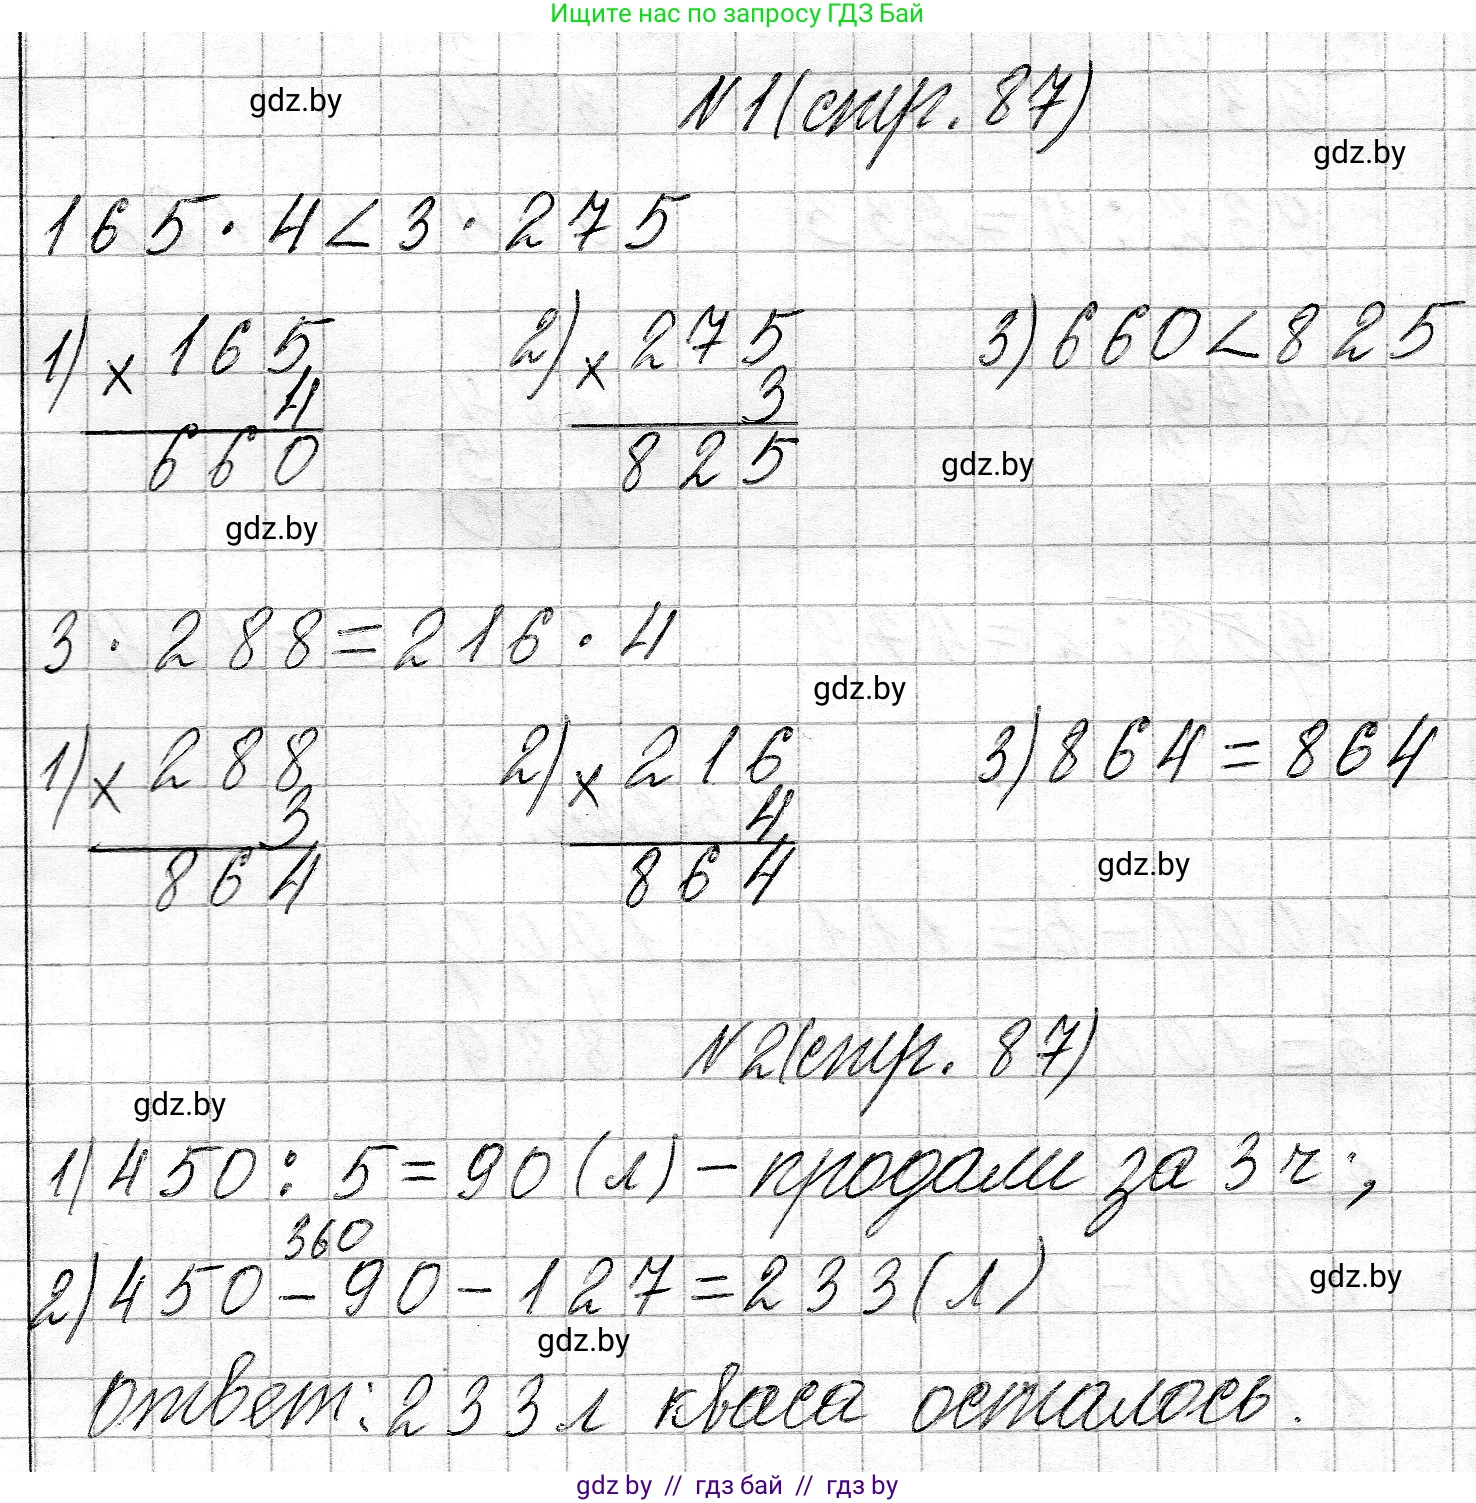 Ищите нас по запросу ГДЗ Бай
gdz.by
N1(стр. 87)
gdz.by
165 · 4 < 3 · 275
1) × 165 2) × 275 3) 660 < 825
4 3
660 825
gdz.by
gdz.by
3 · 288 = 216 · 4
gdz.by
1) × 288 2) × 216 3) 864 = 864
3 4
864 864
gdz.by
N2(стр. 87)
gdz.by
1) 450 : 5 = 90 (л) – продали за 3 ч;
360
2) 450 – 90 – 127 = 233 (л)
gdz.by
gdz.by
ответ: 233 л кваса осталось.
gdz by // гдз бай // гдз by